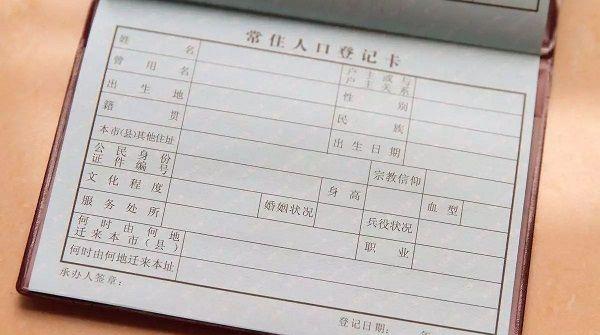 常住人口登记卡
姓名 户主或与户主关系
曾用名 性别
出生地 民族
籍贯 出生日期
本市(县)其他住址 宗教信仰
公民身份证件编号 身高 血型
文化程度 婚姻状况 兵役状况
服务处所 职业
何时由何地迁来本市(县)
何时由何地迁来本址
承办人签章:
登记日期: